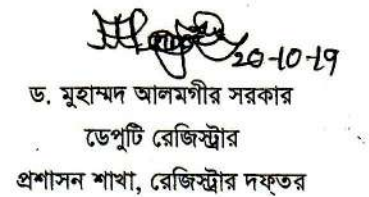 20-10-19
ড. মুহাম্মদ আলমগীর সরকার
ডেপুটি রেজিস্ট্রার
প্রশাসন শাখা, রেজিস্ট্রার দফ্তর